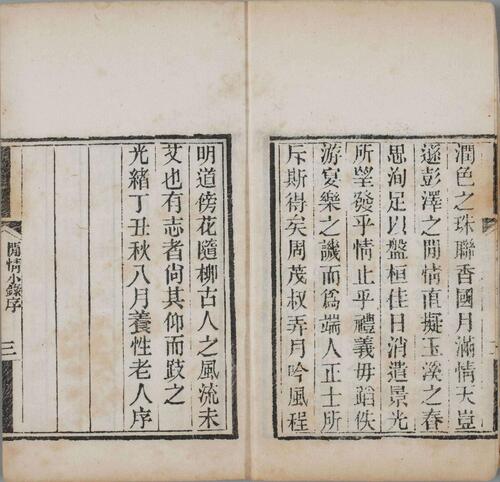 潤色之珠聯香國月滿情天豈
遜彭澤之閒情直擬玉溪之春
思洵足以盤桓佳日消遣景光
所望發乎情止乎禮義毋蹈佚
游宴樂之譏而爲端人正士所
斥斯得矣周茂叔弄月吟風程
明道傍花隨柳古人之風流未
艾也有志者尙其仰而跂之
光緒丁丑秋八月養性老人序
閒情小錄序
三